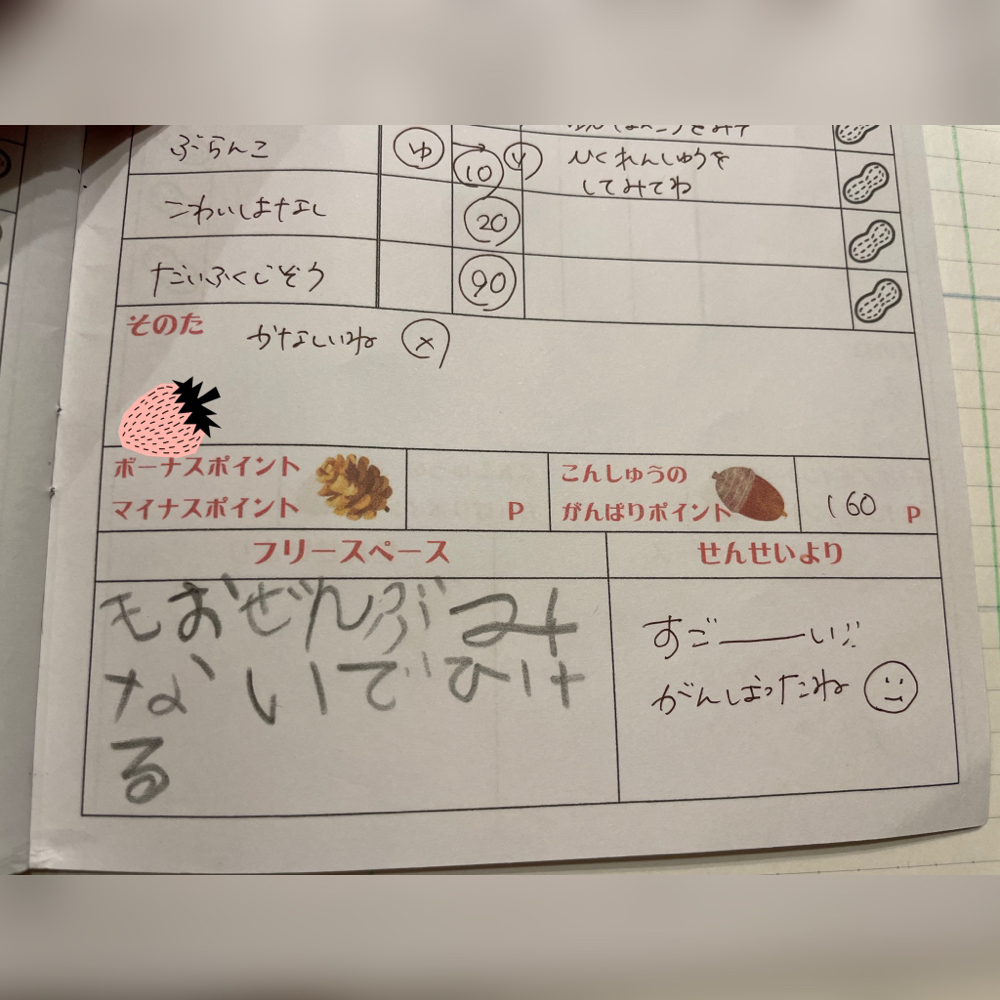 ぶらんこ
ゆ
10
ひくれんしゅうを
してみてね
こわいはなし
20
だいふくじぞう
90
そのた
かなしいね
ボーナスポイント
マイナスポイント
P
こんしゅうの
がんばりポイント
160 P
フリースペース
せんせいより
もおぜんぶみ
ないでひけ
る
すごーーい!!
がんばったね